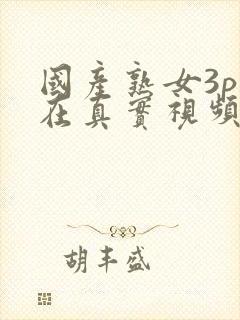 國產熟女3p
在真實視頻
胡丰盛